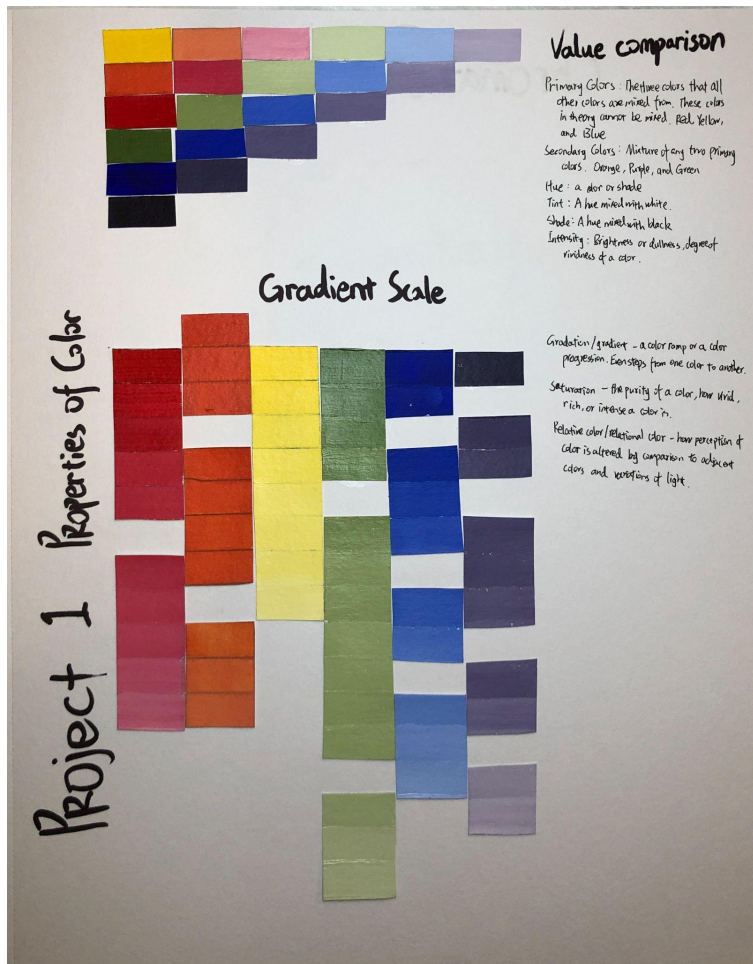 Value comparison
Primary Colors : The three colors that all
other colors are mixed from. These colors
in theory cannot be mixed. Red, Yellow,
and Blue
Secondary Colors : Mixture of any two primary
colors. Orange, Purple, and Green
Hue : a color or shade
Tint : A hue mixed with white.
Shade : A hue mixed with black
Intensity : Brightness or dullness, degree of
vividness of a color.
Gradient Scale
Gradation/gradient - a color ramp or a color
progression. Even steps from one color to another.
Saturation - the purity of a color, how vivid,
rich, or intense a color is.
Relative color/relational color - how perception of
color is altered by comparison to adjacent
colors and variations of light.
Project 1 Properties of Color